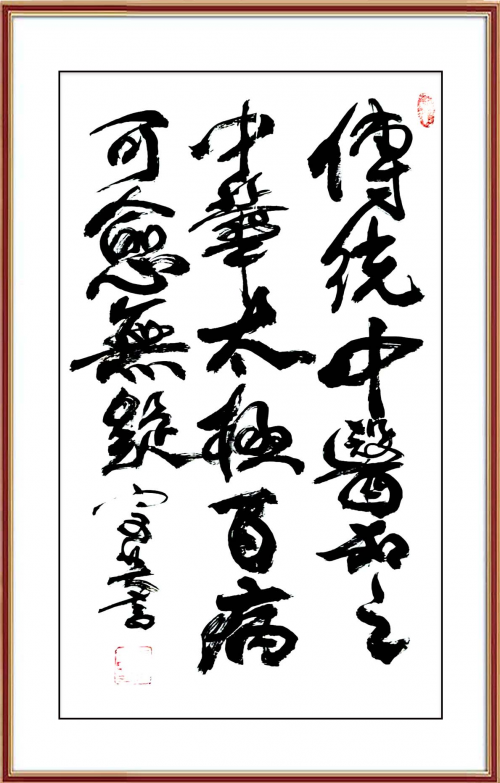 傳統中醫加之
中華太極百病
可愈無疑
書